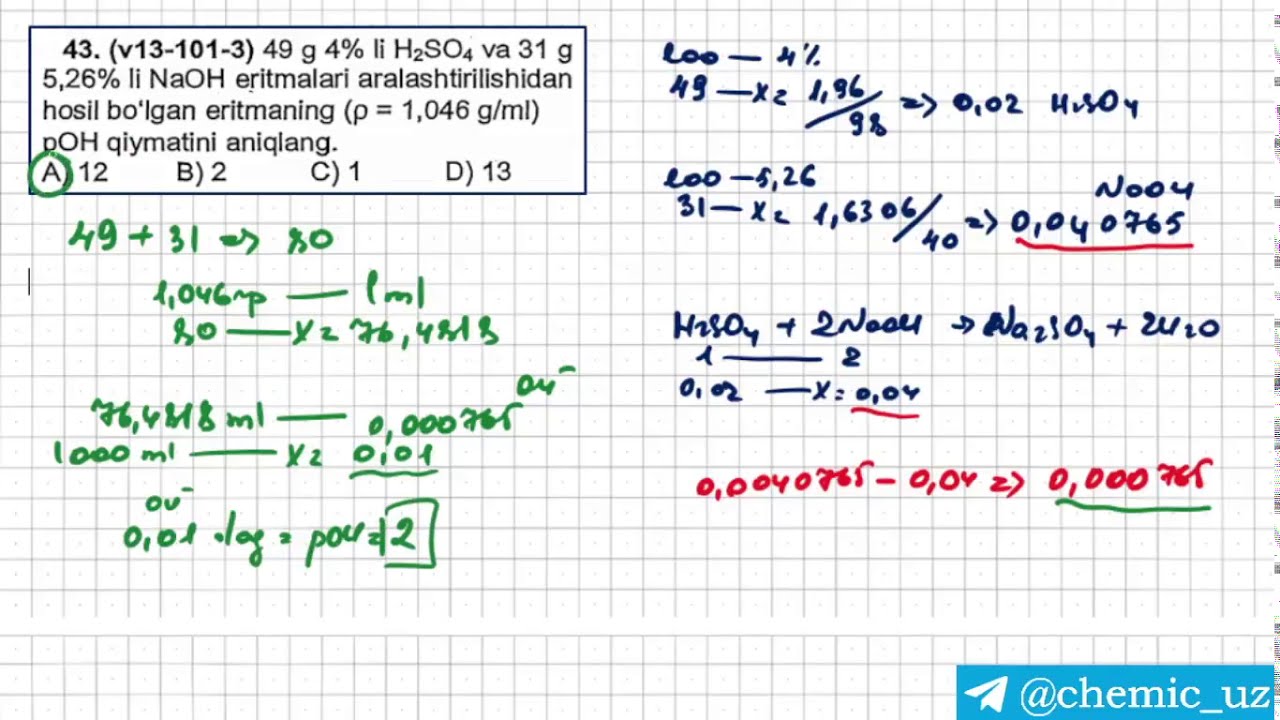 43. (v13-101-3) 49 g 4% li H₂SO₄ va 31 g
5,26% li NaOH eritmalari aralashtirilishidan
hosil bo'lgan eritmaning (ρ = 1,046 g/ml)
pOH qiymatini aniqlang.
A) 12 B) 2 C) 1 D) 13
49 + 31 => 80
1,046 гр — 1 ml
80 — x = 76,4818
OH⁻
76,4818 ml — 0,000765
1000 ml — x = 0,01
OH⁻
0,01 · log = pOH = 2
100 — 4%
49 — x = 1,96/98 => 0,02 H₂SO₄
100 — 5,26
NaOH
31 — x = 1,6306/40 => 0,040765
H₂SO₄ + 2NaOH → Na₂SO₄ + 2H₂O
1 — 2
0,02 — x = 0,04
0,0040765 - 0,04 => 0,000765
@chemic_uz